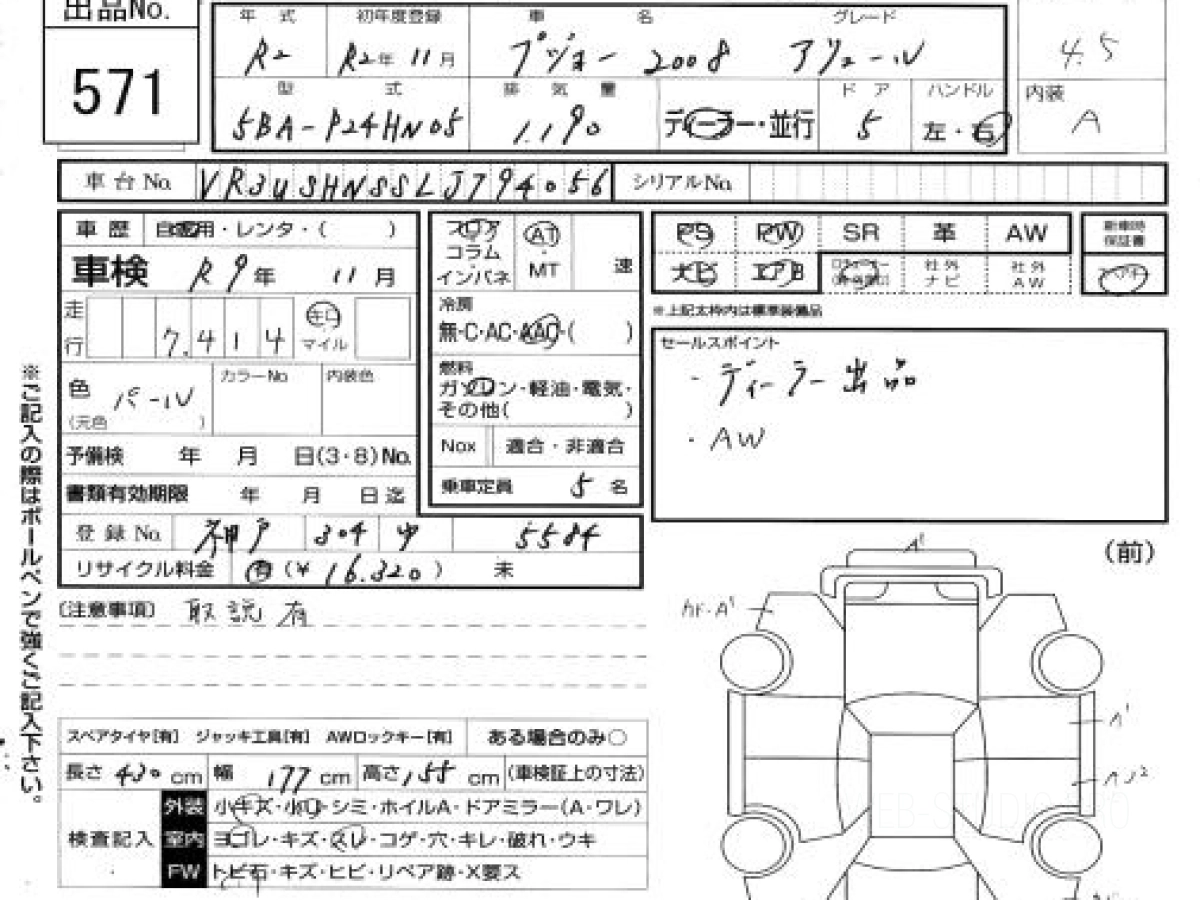 出品No.
571
年 式 初年度登録 車 名 グレード
R2 R2年 11月 プジョー 2008 アリュール 4.5
型 式 排 気 量 ド ア ハンドル 内装
5BA-P24HN05 1.190 ディーラー・並行 5 左・右 A
車台No. VR3USHNSSLJ794056 シリアルNo.
車 歴 自家用・レンタ・( )
車検 R9年 11月
走行 7.414 キロ マイル
色 パール (元色 ) カラーNo. 内装色
予備検 年 月 日(3・8)No.
書類有効期限 年 月 日迄
登 録 No. 神戸 304 ゆ 5584
リサイクル料金 有(¥16.320) 未
フロア
コラム
インパネ
AT
MT
速
冷房
無・C・AC・AAC・( )
燃料
ガソリン・軽油・電気・
その他( )
Nox 適合・非適合
乗車定員 5名
PS PW SR 革 AW
ナビ エアB 社外ナビ 社外AW
新車時保証書
※上記太枠内は標準装備品
セールスポイント
・ディーラー出品
・AW
※ご記入の際はボールペンで強くご記入下さい。
〔注意事項〕 取説有
(前)
A1
A1
スペアタイヤ[有] ジャッキ工具[有] AWロックキー[有] ある場合のみ○
長さ 430cm 幅 177cm 高さ 155cm (車検証上の寸法)
検査記入
外装 小キズ・小凹・シミ・ホイルA・ドアミラー(A・ワレ)
室内 ヨゴレ・キズ・スレ・コゲ・穴・キレ・破れ・ウキ
FW トビ石・キズ・ヒビ・リペア跡・X要ス